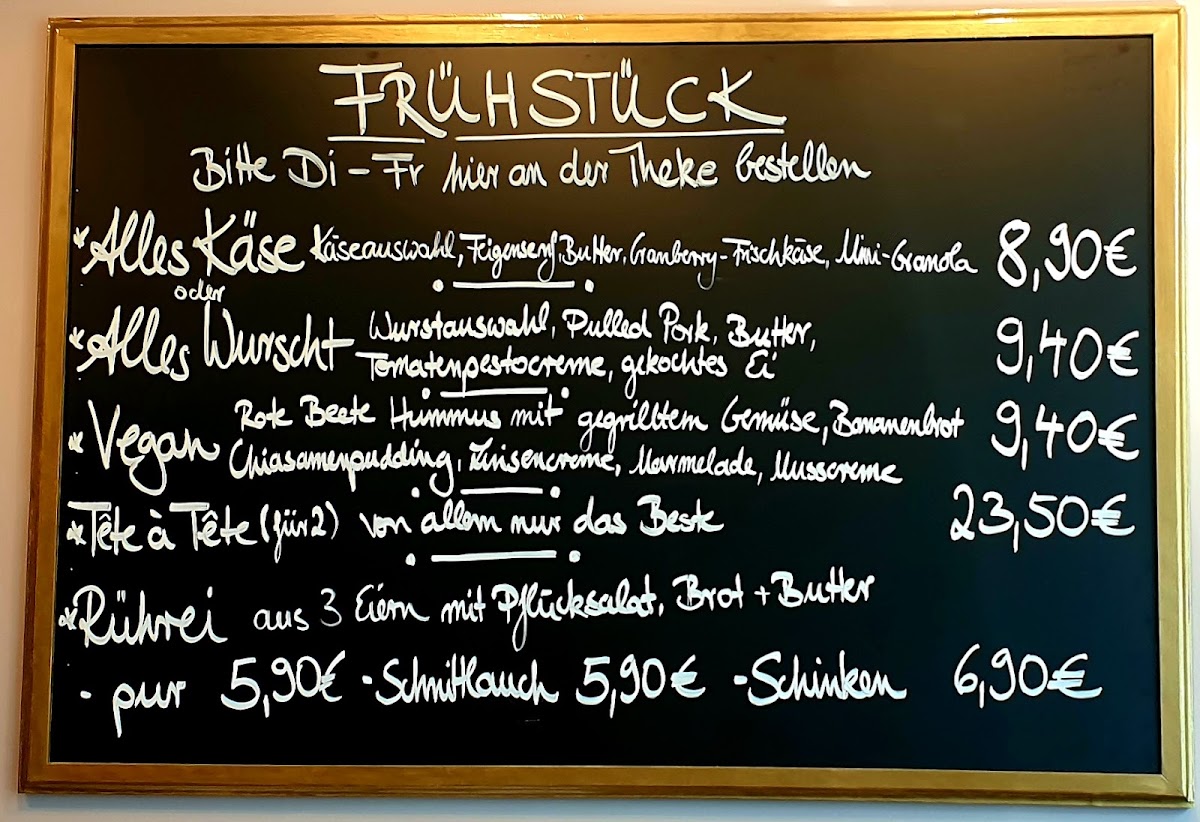 FRÜHSTÜCK
Bitte Di - Fr hier an der Theke bestellen
* Alles Käse Käseauswahl, Feigensenf, Butter, Cranberry-Frischkäse, Mini-Granola 8,90€
oder
* Alles Wurscht Wurstauswahl, Pulled Pork, Butter, 9,40€
Tomatenpestocreme, gekochtes Ei
* Vegan Rote Beete Hummus mit gegrilltem Gemüse, Bananenbrot 9,40€
Chiasamenpudding, Linsencreme, Marmelade, Nusscreme
* Tête à Tête (für 2) von allem nur das Beste 23,50€
* Rührei aus 3 Eiern mit Pflücksalat, Brot + Butter
- pur 5,90€ - Schnittlauch 5,90€ - Schinken 6,90€